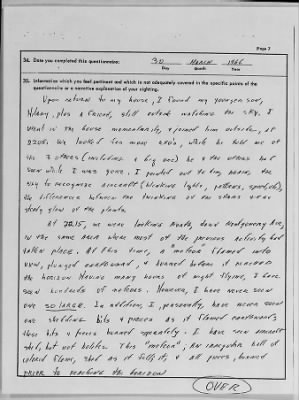 Page 7
34. Date you completed this questionnaire: 30 March 1966
Day Month Year
35. Information which you feel pertinent and which is not adequately covered in the specific points of the
questionnaire or a narrative explanation of your sighting.
Upon return to my house, I found my younger son,
plus a friend, still outside watching the sky. I
went in the house momentarily, rejoined him outside, at
2205. We looked for more and he told me of
the 3 others (including a big one) he & the others had
seen while I was gone. I pointed out to him, again, the
way to recognize aircraft (blinking lights, patterns, speed, etc),
the difference between the twinkling of the stars & the
steady glow of the planets.
At 2215, we were looking north, down Montgomery Ave,
in the same area where most of the previous activity had
taken place. At this time, a "meteor" flamed into
view, plunged earthward, & burned before it reached
the horizon. Having many hours of night flying, I have
seen hundreds of meteors. However, I have never seen
one so large. In addition, I, personally, have never seen
one shedding bits & pieces as it flamed earthward,
these bits & pieces burned separately. I have seen aircraft
shot, but not bolides. This "meteor", an irregular ball of
colored flame, shed as it fell, & all pieces, burned
prior to reaching the horizon
OVER